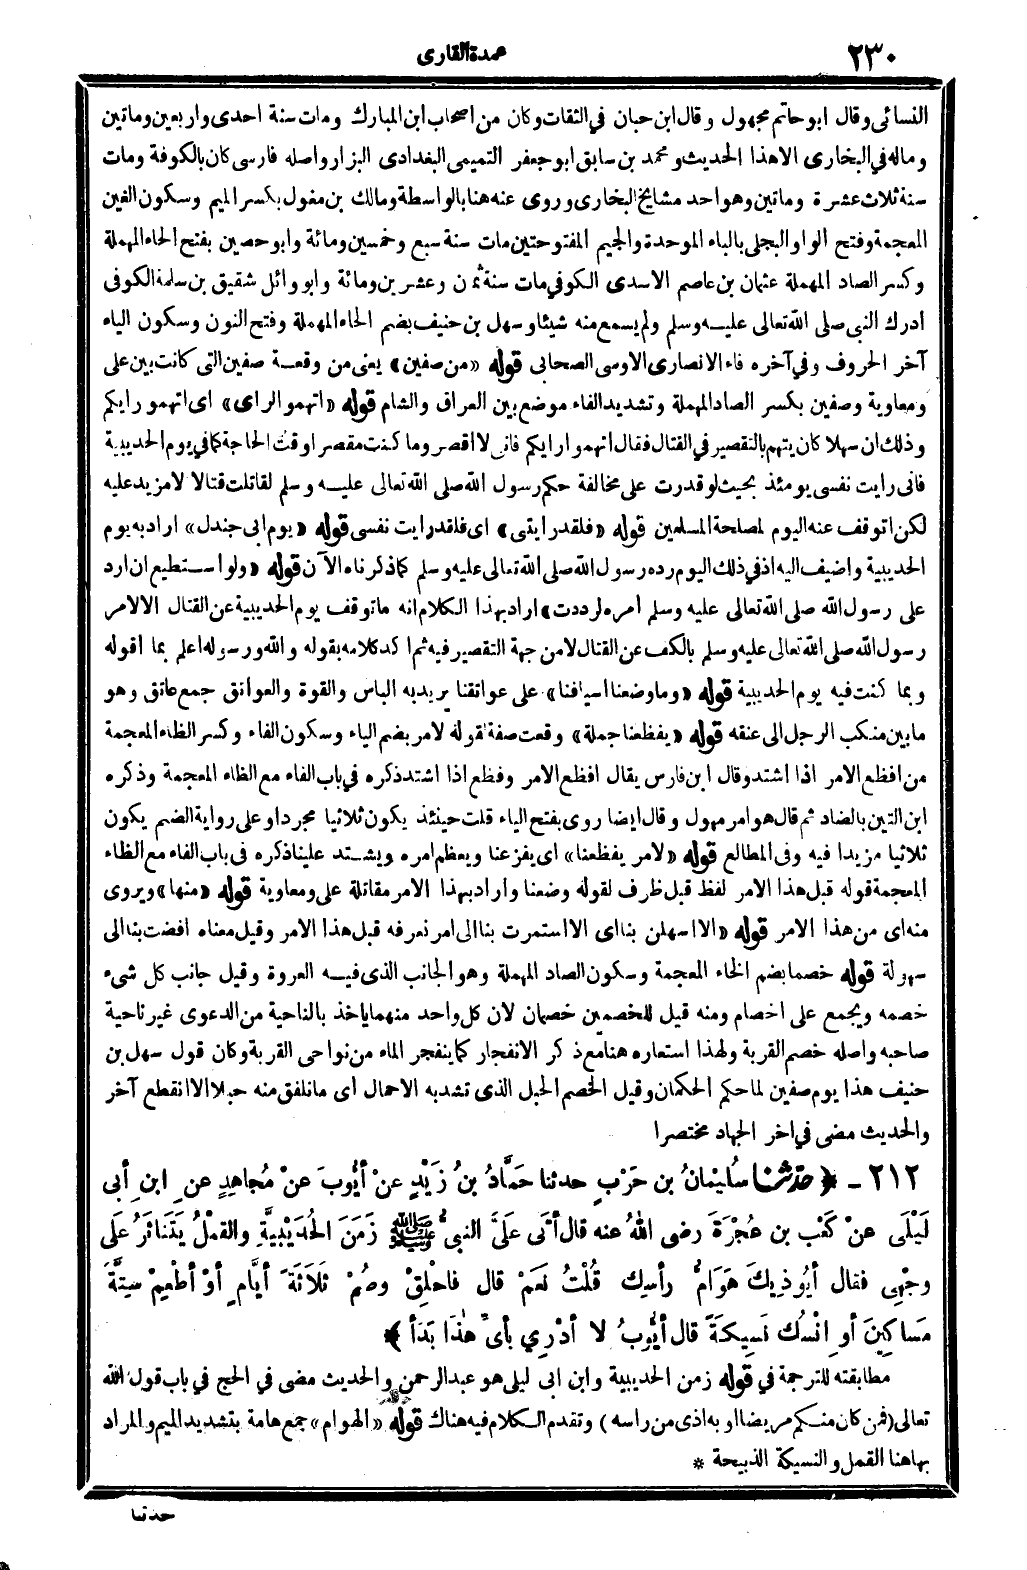 ٢٣٠
عمدة القارى
النسائى وقال ابو حاتم مجهول وقال ابن حبان في الثقات وكان من اصحاب ابن المبارك ومات سنة احدى واربعين وماتين
وماله في البخارى الا هذا الحديث و محمد بن سابق ابو جعفر التميمى البغدادى البزار واصله فارسى كان بالكوفة ومات
سنة ثلاث عشرة وماتين وهو احد مشايخ البخارى وروى عنه هنا بالواسطة ومالك بن مغول بكسر الميم وسكون الغين
المعجمة وفتح الواو البجلى بالباء الموحدة والجيم المفتوحتين مات سنة سبع وخمسين ومائة وابو حصين بفتح الحاء المهملة
وكسر الصاد المهملة عثمان بن عاصم الاسدى الكوفي مات سنة ثمان وعشرين ومائة وابو وائل شقيق بن سلمة الكوفى
ادرك النبي صلى الله تعالى عليه وسلم ولم يسمع منه شيئا وسهل بن حنيف بضم الحاء المهملة وفتح النون وسكون الياء
آخر الحروف وفي آخره فاء الانصارى الاوسى الصحابى قوله «من صفين» يعنى من وقعة صفين التى كانت بين على
ومعاوية وصفين بكسر الصاد المهملة وتشديد الفاء موضع بين العراق والشام قوله «اتهموا الراى» اى اتهموا رايكم
وذلك ان سهلا كان يتهم بالتقصير في القتال فقال اتهموا رايكم فانى لا اقصر وما كنت مقصرا وقت الحاجة كما في يوم الحديبية
فانى رايت نفسى يومئذ بحيث لو قدرت على مخالفة حكم رسول الله صلى الله تعالى عليه وسلم لقاتلت قتالا لا مزيد عليه
لكن اتوقف عنه اليوم لمصلحة المسلمين قوله «فلقد رايتى» اى فلقد رايت نفسى قوله «يوم ابى جندل» اراد به يوم
الحديبية واضيف اليه اذ في ذلك اليوم رده رسول الله صلى الله تعالى عليه وسلم كما ذكرناه الآن قوله «ولو استطيع ان ارد
على رسول الله صلى الله تعالى عليه وسلم أمره لرددت» اراد بهذا الكلام انه ما توقف يوم الحديبية عن القتال الا لامر
رسول الله صلى الله تعالى عليه وسلم بالكف عن القتال لا من جهة التقصير فيه ثم اكد كلامه بقوله والله ورسوله اعلم بما اقوله
وبما كنت فيه يوم الحديبية قوله «وما وضعنا اسيافنا» على عواتقنا يريد به الباس والقوة والعواتق جمع عاتق وهو
ما بين منكب الرجل الى عنقه قوله «يفظعنا جملة» وقعت صفة لقوله لامر بضم الياء وسكون الفاء وكسر الظاء المعجمة
من افظع الامر اذا اشتد وقال ابن فارس يقال افظع الامر وفظع اذا اشتد ذكره في باب الفاء مع الظاء المعجمة وذكره
ابن التين بالضاد ثم قال هو امر مهول وقال ايضا روى بفتح الياء قلت حينئذ يكون ثلاثيا مجردا وعلى رواية الضم يكون
ثلاثيا مزيدا فيه وفى المطالع قوله «لامر يفظعنا» اى يفزعنا ويعظم امره ويشتد علينا ذكره فى باب الفاء مع الظاء
المعجمة قوله قبل هذا الامر لفظ قبل ظرف لقوله وضعنا واراد بهذا الامر مقاتلة على ومعاوية قوله «منها» ويروى
منه اى من هذا الامر قوله «الا اسهلن بنا اى الا استمرت بنا الى امر نعرفه قبل هذا الامر وقيل معناه افضت بنا الى
سهولة قوله خصما بضم الخاء المعجمة وسكون الصاد المهملة وهو الجانب الذى فيه العروة وقيل جانب كل شىء
خصمه ويجمع على اخصام ومنه قيل للخصمين خصمان لان كل واحد منهما ياخذ بالناحية من الدعوى غير ناحية
صاحبه واصله خصم القربة ولهذا استعاره هنا مع ذكر الانفجار كما ينفجر الماء من نواحى القربة وكان قول سهل بن
حنيف هذا يوم صفين لما حكم الحكمان وقيل الخصم الحبل الذى تشد به الاحمال اى ما نلفق منه حبلا الا انقطع آخر
والحديث مضى في اخر الجهاد مختصرا
٢١٢ - ﴿ حدثنا سُلَيْمَانُ بن حَرْبٍ حدثنا حَمَّادُ بنُ زَيْدٍ عنْ أيُّوبَ عنْ مُجاهِدٍ عنِ ابنِ أبى
لَيْلَى عنْ كَعْبِ بن عُجْرَةَ رضى اللهُ عنه قال أتَى عَلَيَّ النبىُّ ﷺ زَمَنَ الحُدَيْبِيَّةِ والقَمْلُ يَتَنَاثَرُ عَلَى
وجْهِى فقال أيُؤذِيكَ هَوَامُّ رأسِك قُلْتُ نَعَمْ قال فاحْلِقْ وصُمْ ثَلاَثَةَ أيَّامٍ أوْ أطْعِمْ سِتَّةَ
مَساكِينَ أوِ انْسُك نَسِيكَةً قال أيُّوبُ لا أدْرِي بأىِّ هٰذَا بَدَأ ﴾
مطابقته للترجمة في قوله زمن الحديبية وابن ابى ليلى هو عبد الرحمن والحديث مضى في الحج في باب قول الله
تعالى (فمن كان منكم مريضا او به اذى من راسه) وتقدم الكلام فيه هناك قوله «الهوام» جمع هامة بتشديد الميم والمراد
بها هنا القمل والنسيكة الذبيحة *
حدثنا